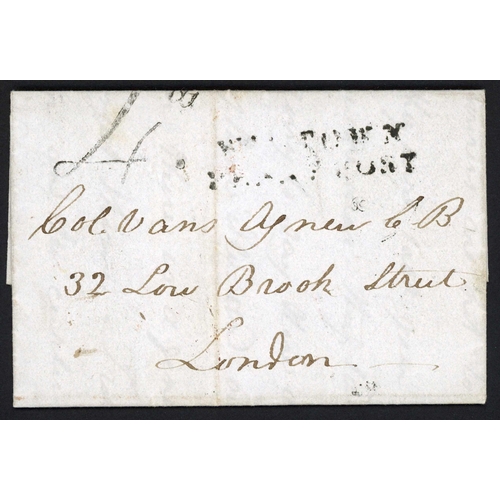 4
TOWN
PENNY POST
Col. Vans Agnew C B
32 Low Brook Street
London